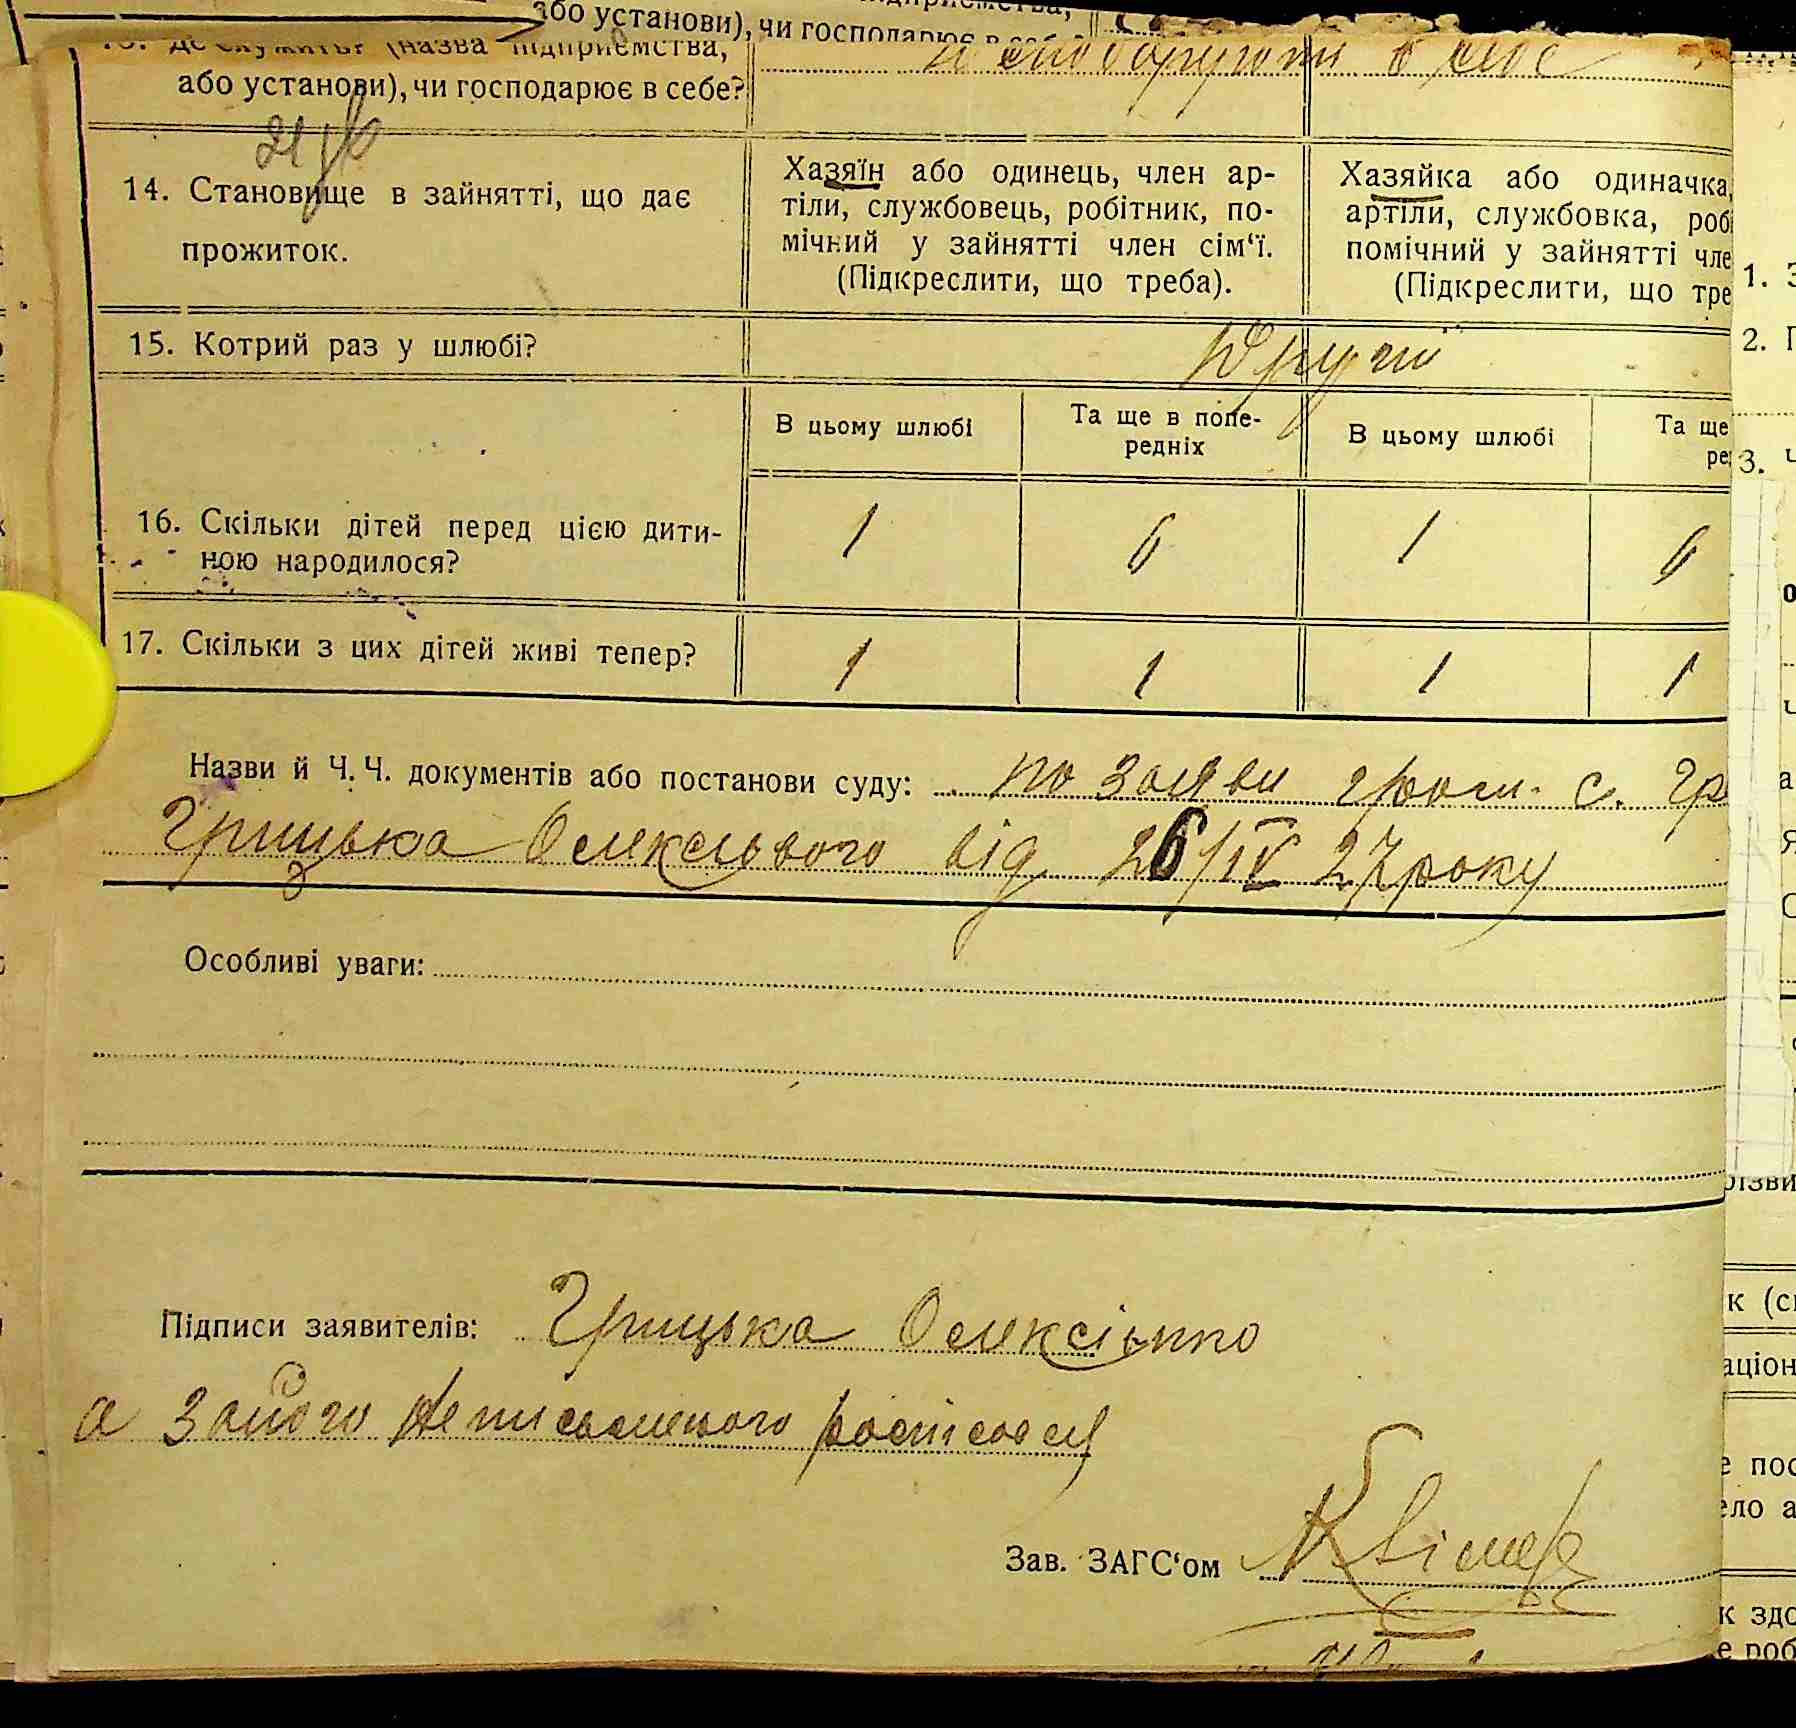 або установи), чи господарює в себе?
13. Де служить? (назва підприємства,
або установи), чи господарює в себе?
14. Становище в зайнятті, що дає
прожиток.
Хазяїн або одинець, член ар-
тіли, службовець, робітник, по-
мічний у зайнятті член сім‘ї.
(Підкреслити, що треба).
Хазяйка або одиначка,
артіли, службовка, роб
помічний у зайнятті чле
(Підкреслити, що тре
15. Котрий раз у шлюбі?
Другий
В цьому шлюбі
Та ще в попе-
редніх
В цьому шлюбі
Та ще
ре
16. Скільки дітей перед цією дити-
ною народилося?
1 6 1 6
17. Скільки з цих дітей живі тепер?
1 1 1 1
Назви й Ч. Ч. документів або постанови суду: по заяви гром. с. Гр
Грицька Олексієвого від 26/IV 27 року
Особливі уваги:
Підписи заявителів: Грицька Олексієнко
а за його неписьменого
Зав. ЗАГС‘ом
1. З
2. Г
3. Ч